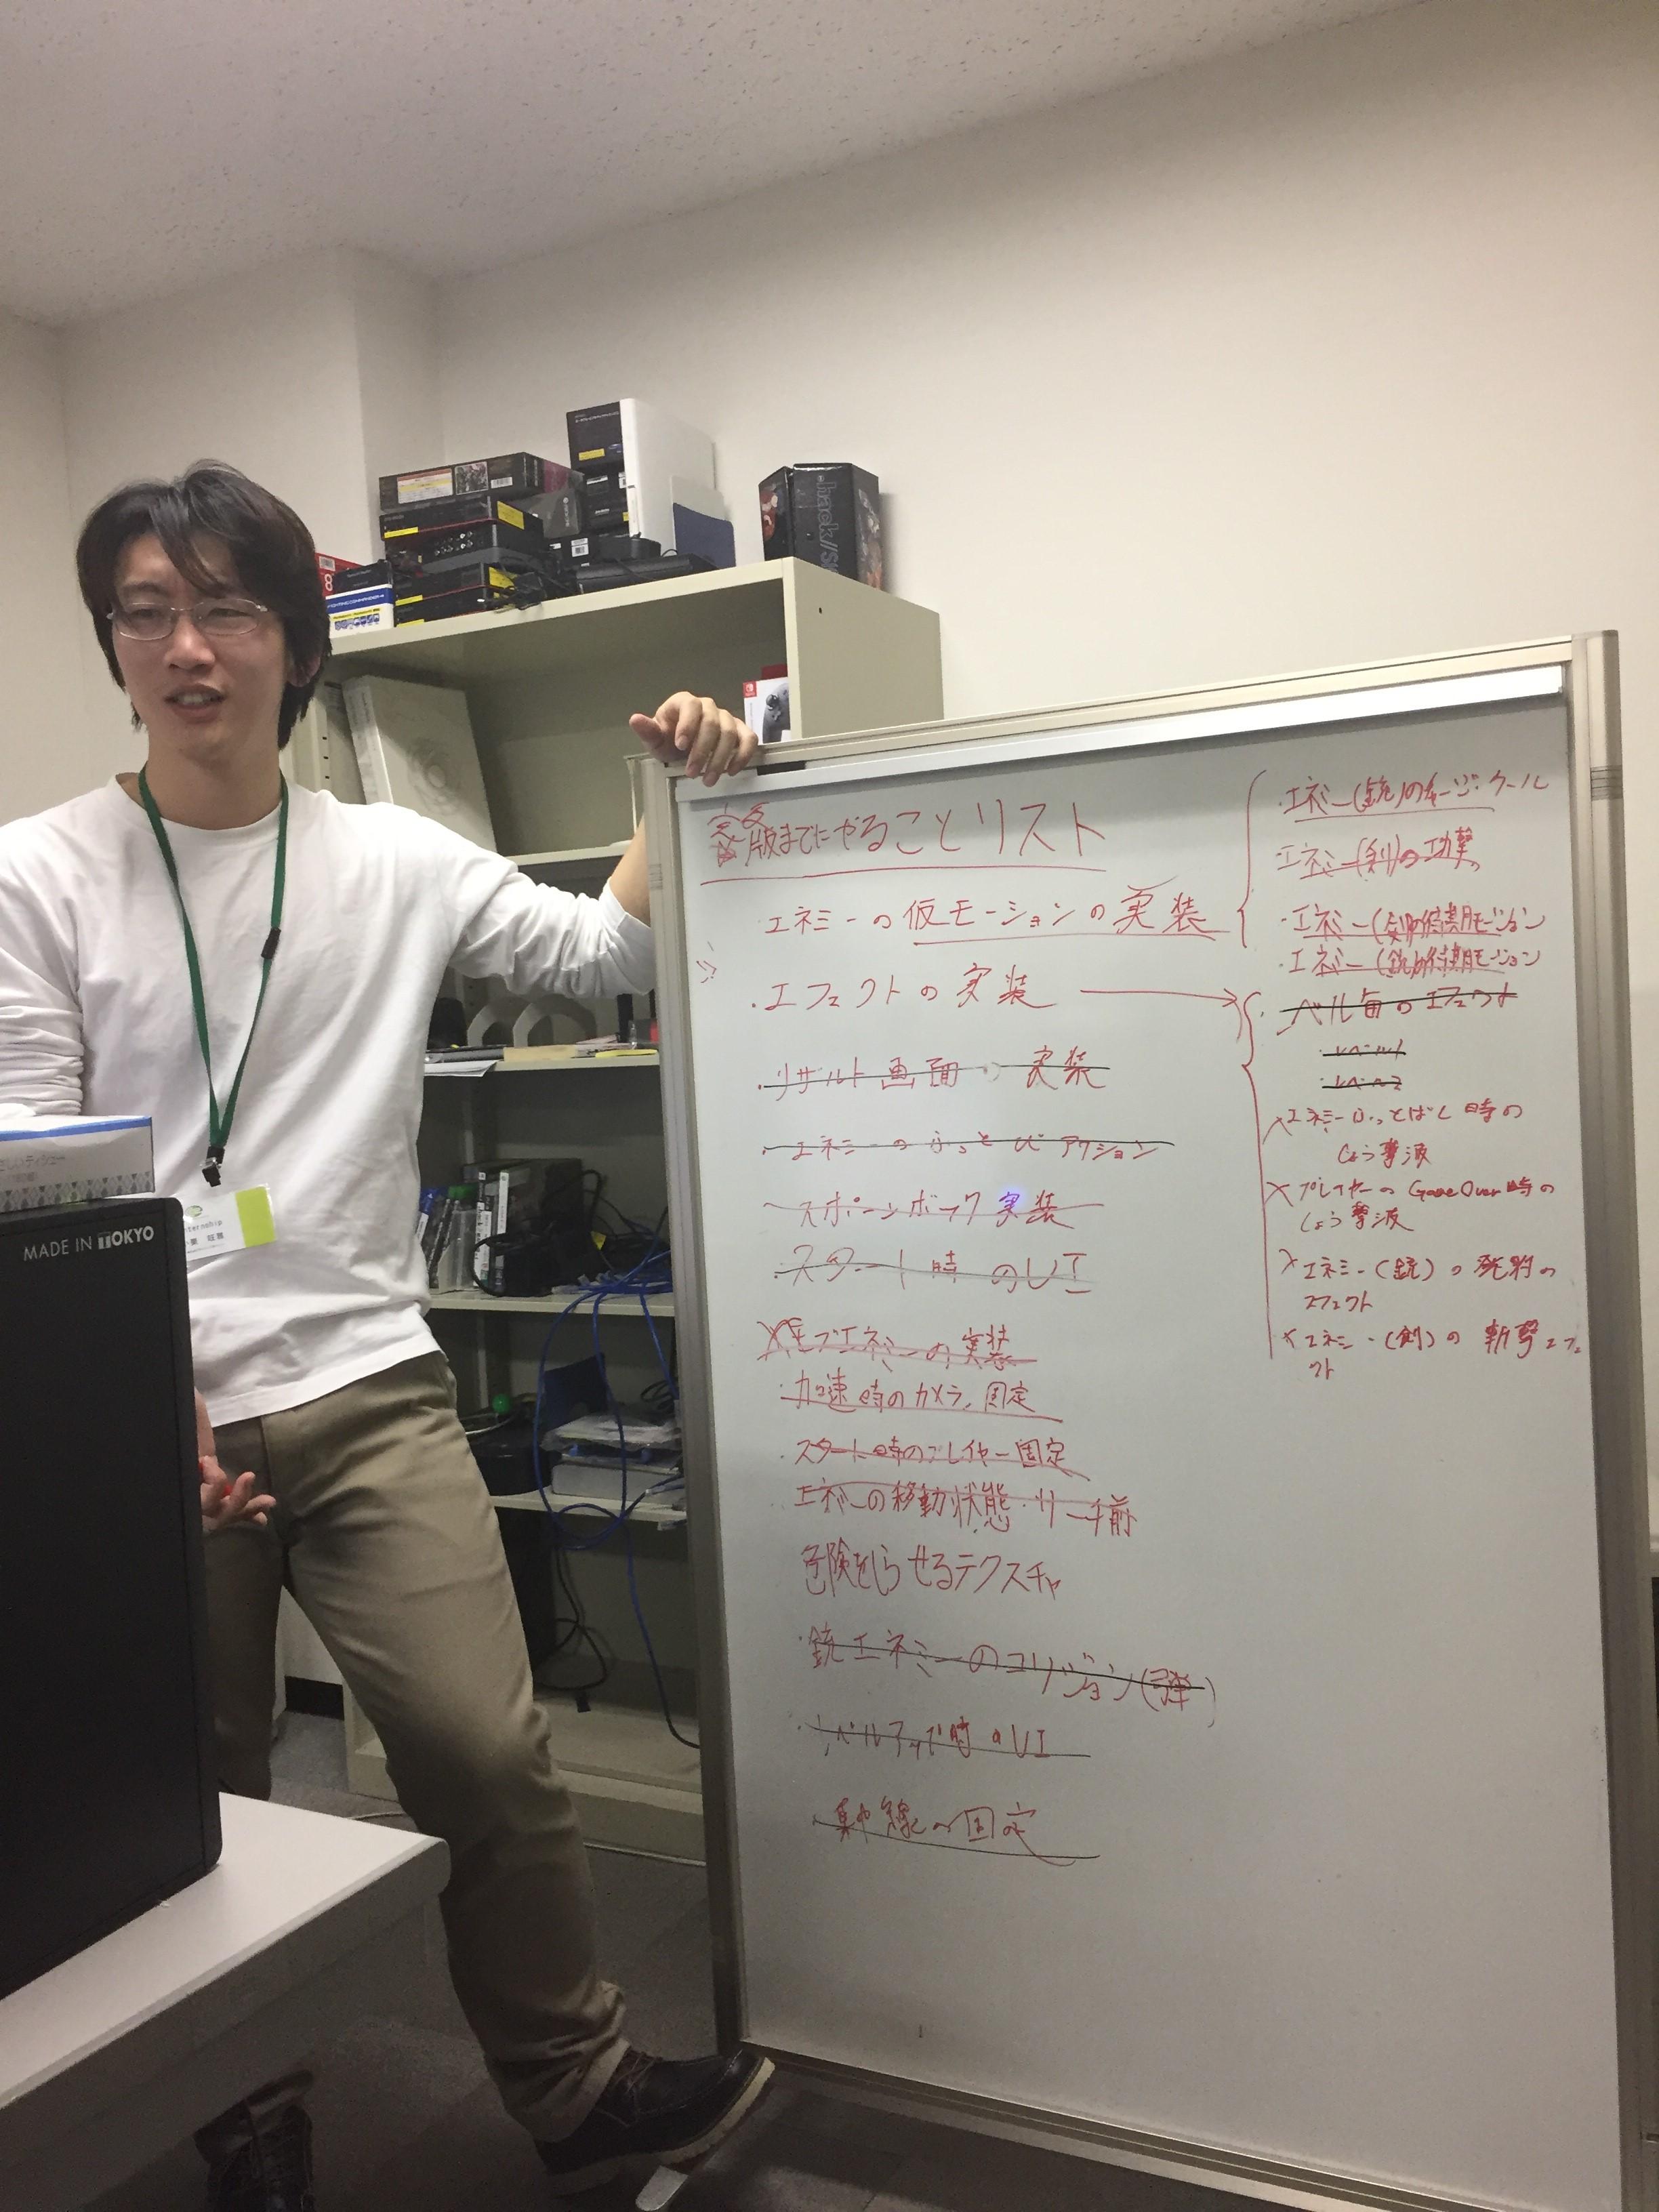 版までにやることリスト
エネミーの仮モーションの実装
・エフェクトの実装
・リザルト画面の実装
・エネミーのふっとびアクション
スポーンボックス実装
・スタート時のUI
モブエネミーの実装
・加速時のカメラ固定
・スタート時のプレイヤー固定
エネミーの移動状態・サーチ前
危険をしらせるテクスチャ
・銃エネミーのコリジョン(弾)
・レベルアップ時のUI
・集中線の固定
・エネミー(銃)の
・エネミー(剣)の攻撃
・エネミー(剣)の待期モーション
・エネミー(銃)の待期モーション
ベル毎のエフェクト
・レベル1
・レベル2
×エネミーふっとばし時の
しょう撃波
×プレイヤーのGameOver時の
しょう撃波
×エネミー(銃)の発射の
エフェクト
×エネミー(剣)の斬撃エフェ
クト
MADE IN TOKYO
.hack//